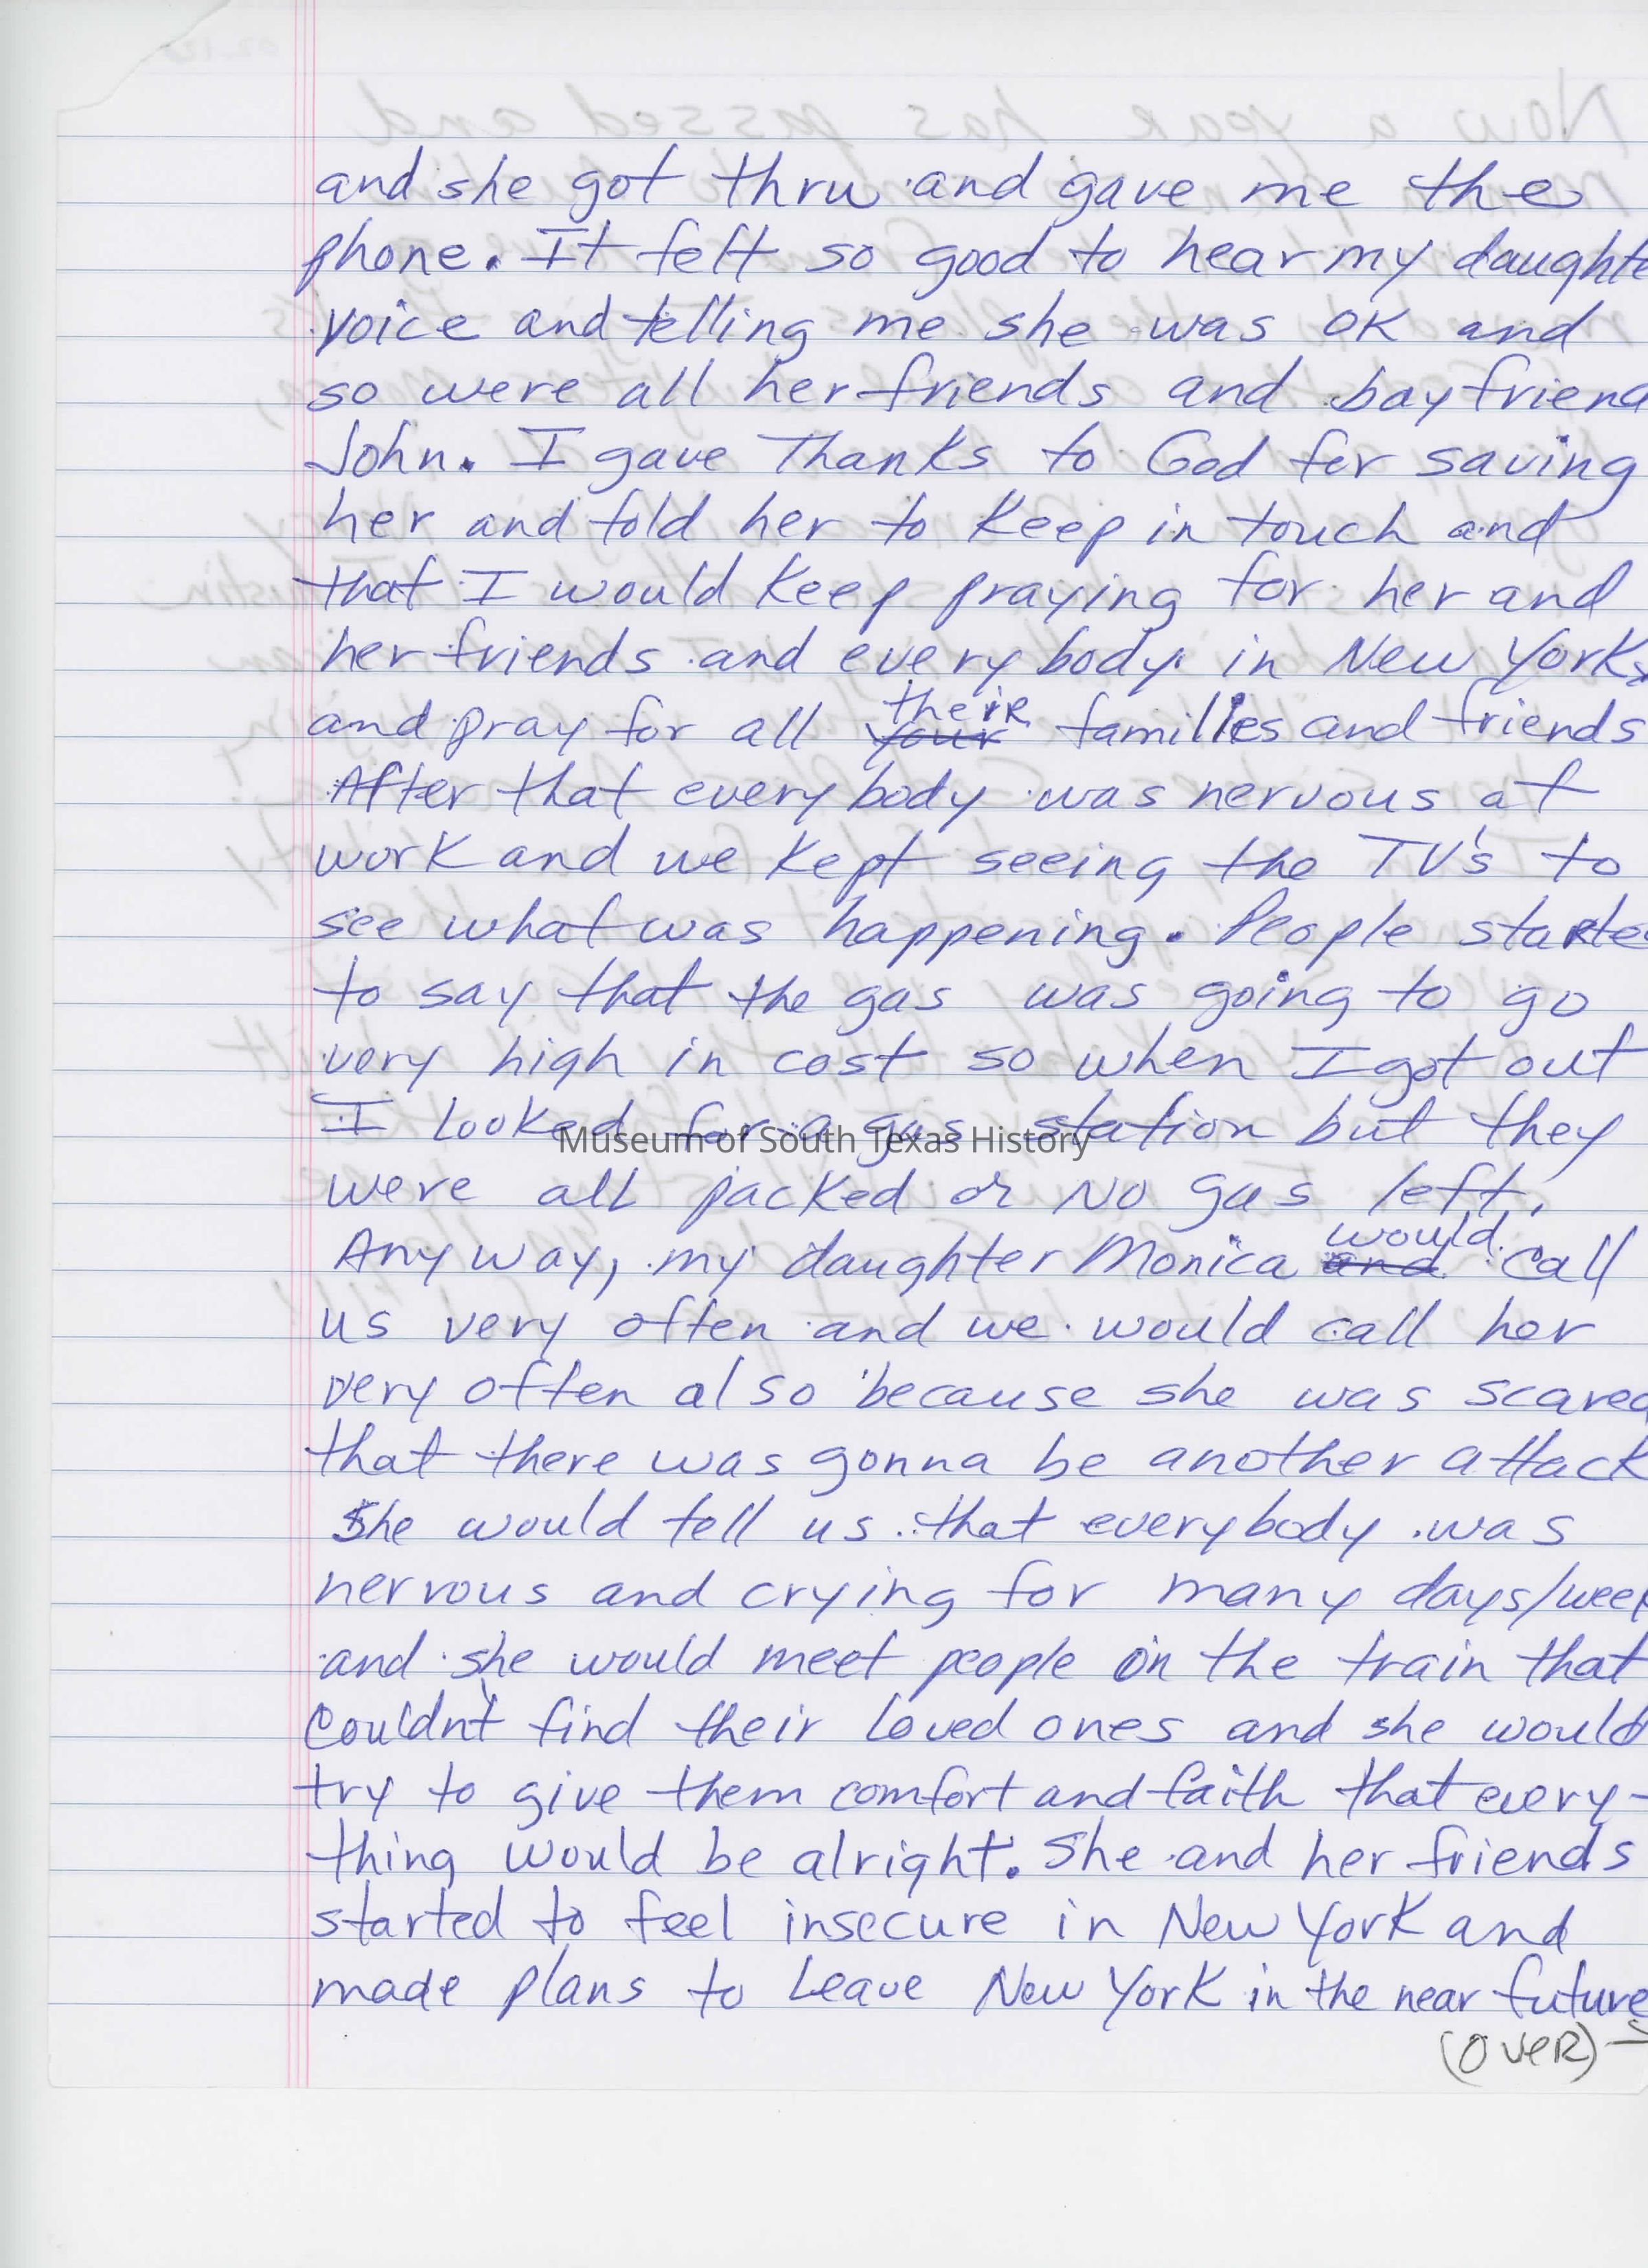 and she got thru and gave me the
phone. It felt so good to hear my daughte
voice and telling me she was OK and
so were all her friends and boyfriend
John. I gave Thanks to God for saving
her and told her to keep in touch and
that I would keep praying for her and
her friends and every body in New York,
and pray for all your theiR families and friends
After that every body was nervous at
work and we kept seeing the TV's to
see what was happening. People starte
to say that the gas was going to go
very high in cost so when I got out
I looked for a gas station but they
Museum of South Texas History
were all packed or no gas left.
Any way, my daughter Monica and would call
us very often and we would call her
very often also because she was scared
that there was gonna be another attack
She would tell us that everybody was
nervous and crying for many days/week
and she would meet people on the train that
Couldn't find their loved ones and she would
try to give them comfort and faith that every-
thing would be alright. She and her friends
started to feel insecure in New York and
made plans to Leave New York in the near future
(OVER)→